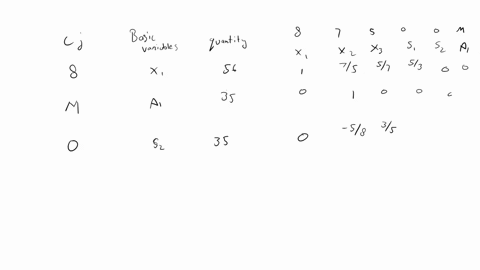 8 7 5 0 0 M
Cj Basic variables quantity x₁ x₂ x₃ s₁ s₂ A₁
8 x₁ 56 1 7/5 5/7 5/3 0 0
M A₁ 35 0 1 0 0 0
0 s₂ 35 0 -5/8 3/5